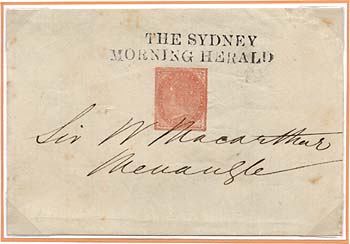 THE SYDNEY
MORNING HERALD
Sir W Macarthur
Menangle